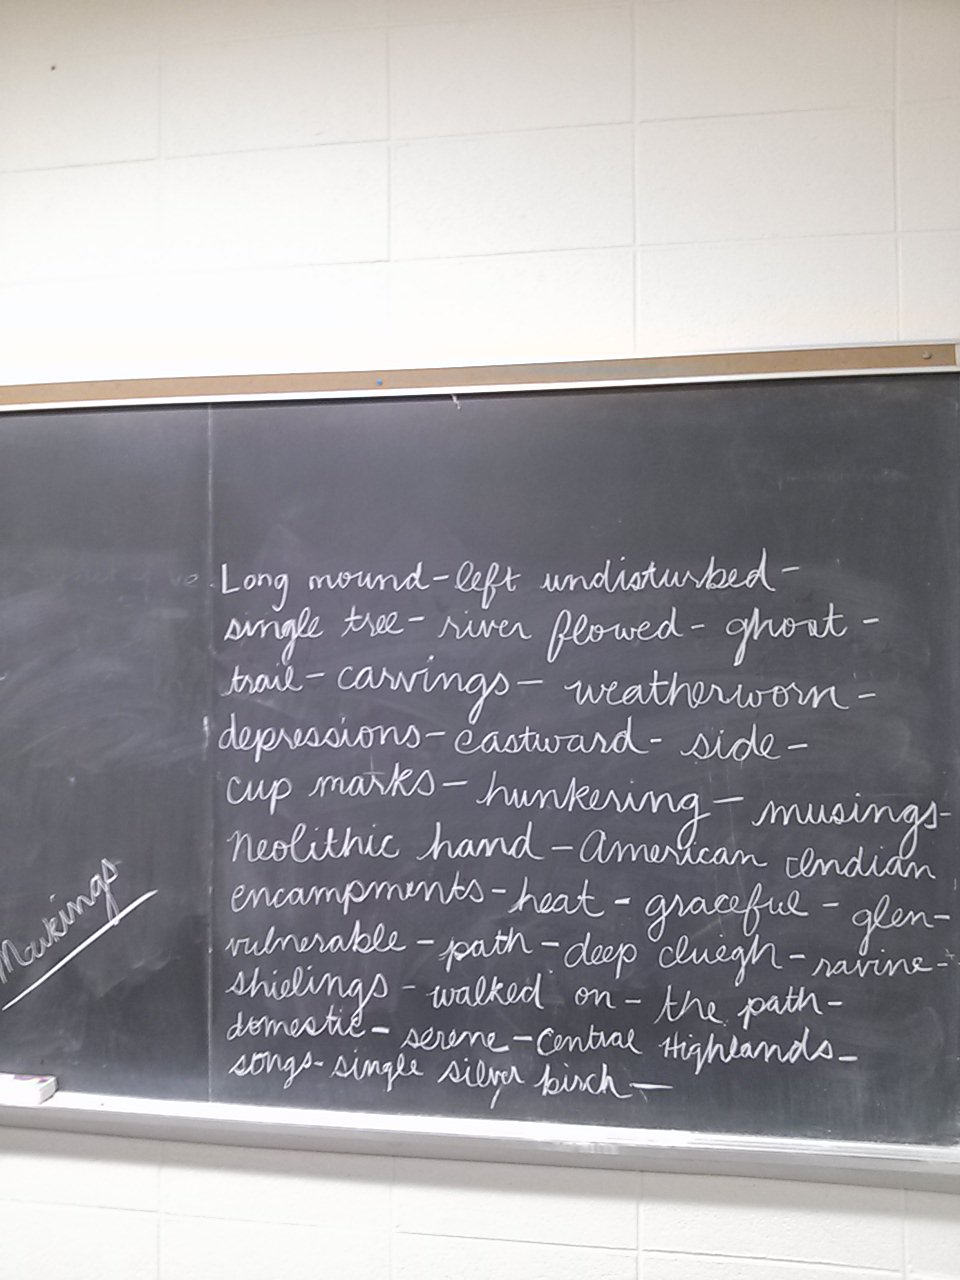 Long mound - left undisturbed -
single tree - river flowed - ghost -
trail - carvings - weatherworn -
depressions - eastward - side -
cup marks - hunkering - musings -
Neolithic hand - American Indian
encampments - heat - graceful - glen -
vulnerable - path - deep cluegh - ravine -
shielings - walked on - the path -
domestic - serene - Central Highlands -
songs - single silver birch -
Markings